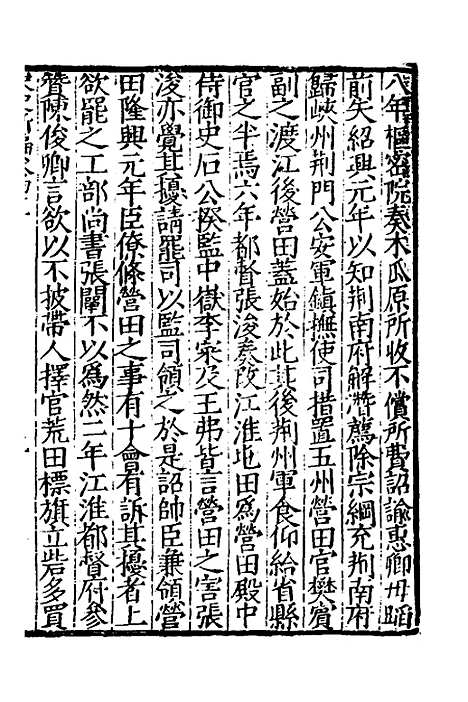 八年樞密院奏木瓜原所收不償所費詔諭惠卿毋蹈
前失紹興元年以知荆南府解潛薦除宗綱充荆南府
歸峽州荆門公安軍鎮撫使司措置五州營田官樊賔
副之渡江後營田蓋始於此其後荆州軍食仰給省縣
官之半焉六年都督張浚奏改江淮屯田爲營田殿中
侍御史石公揆監中嶽李寀及王弗皆言營田之害張
浚亦覺其擾請罷司以監司領之於是詔帥臣兼領營
田隆興元年臣僚條營田之事有十㑹有訴其擾者上
欲罷之工部尚書張闡不以爲然二年江淮都督府參
贊陳俊卿言欲以不披帶人擇官荒田標旗立砦多買